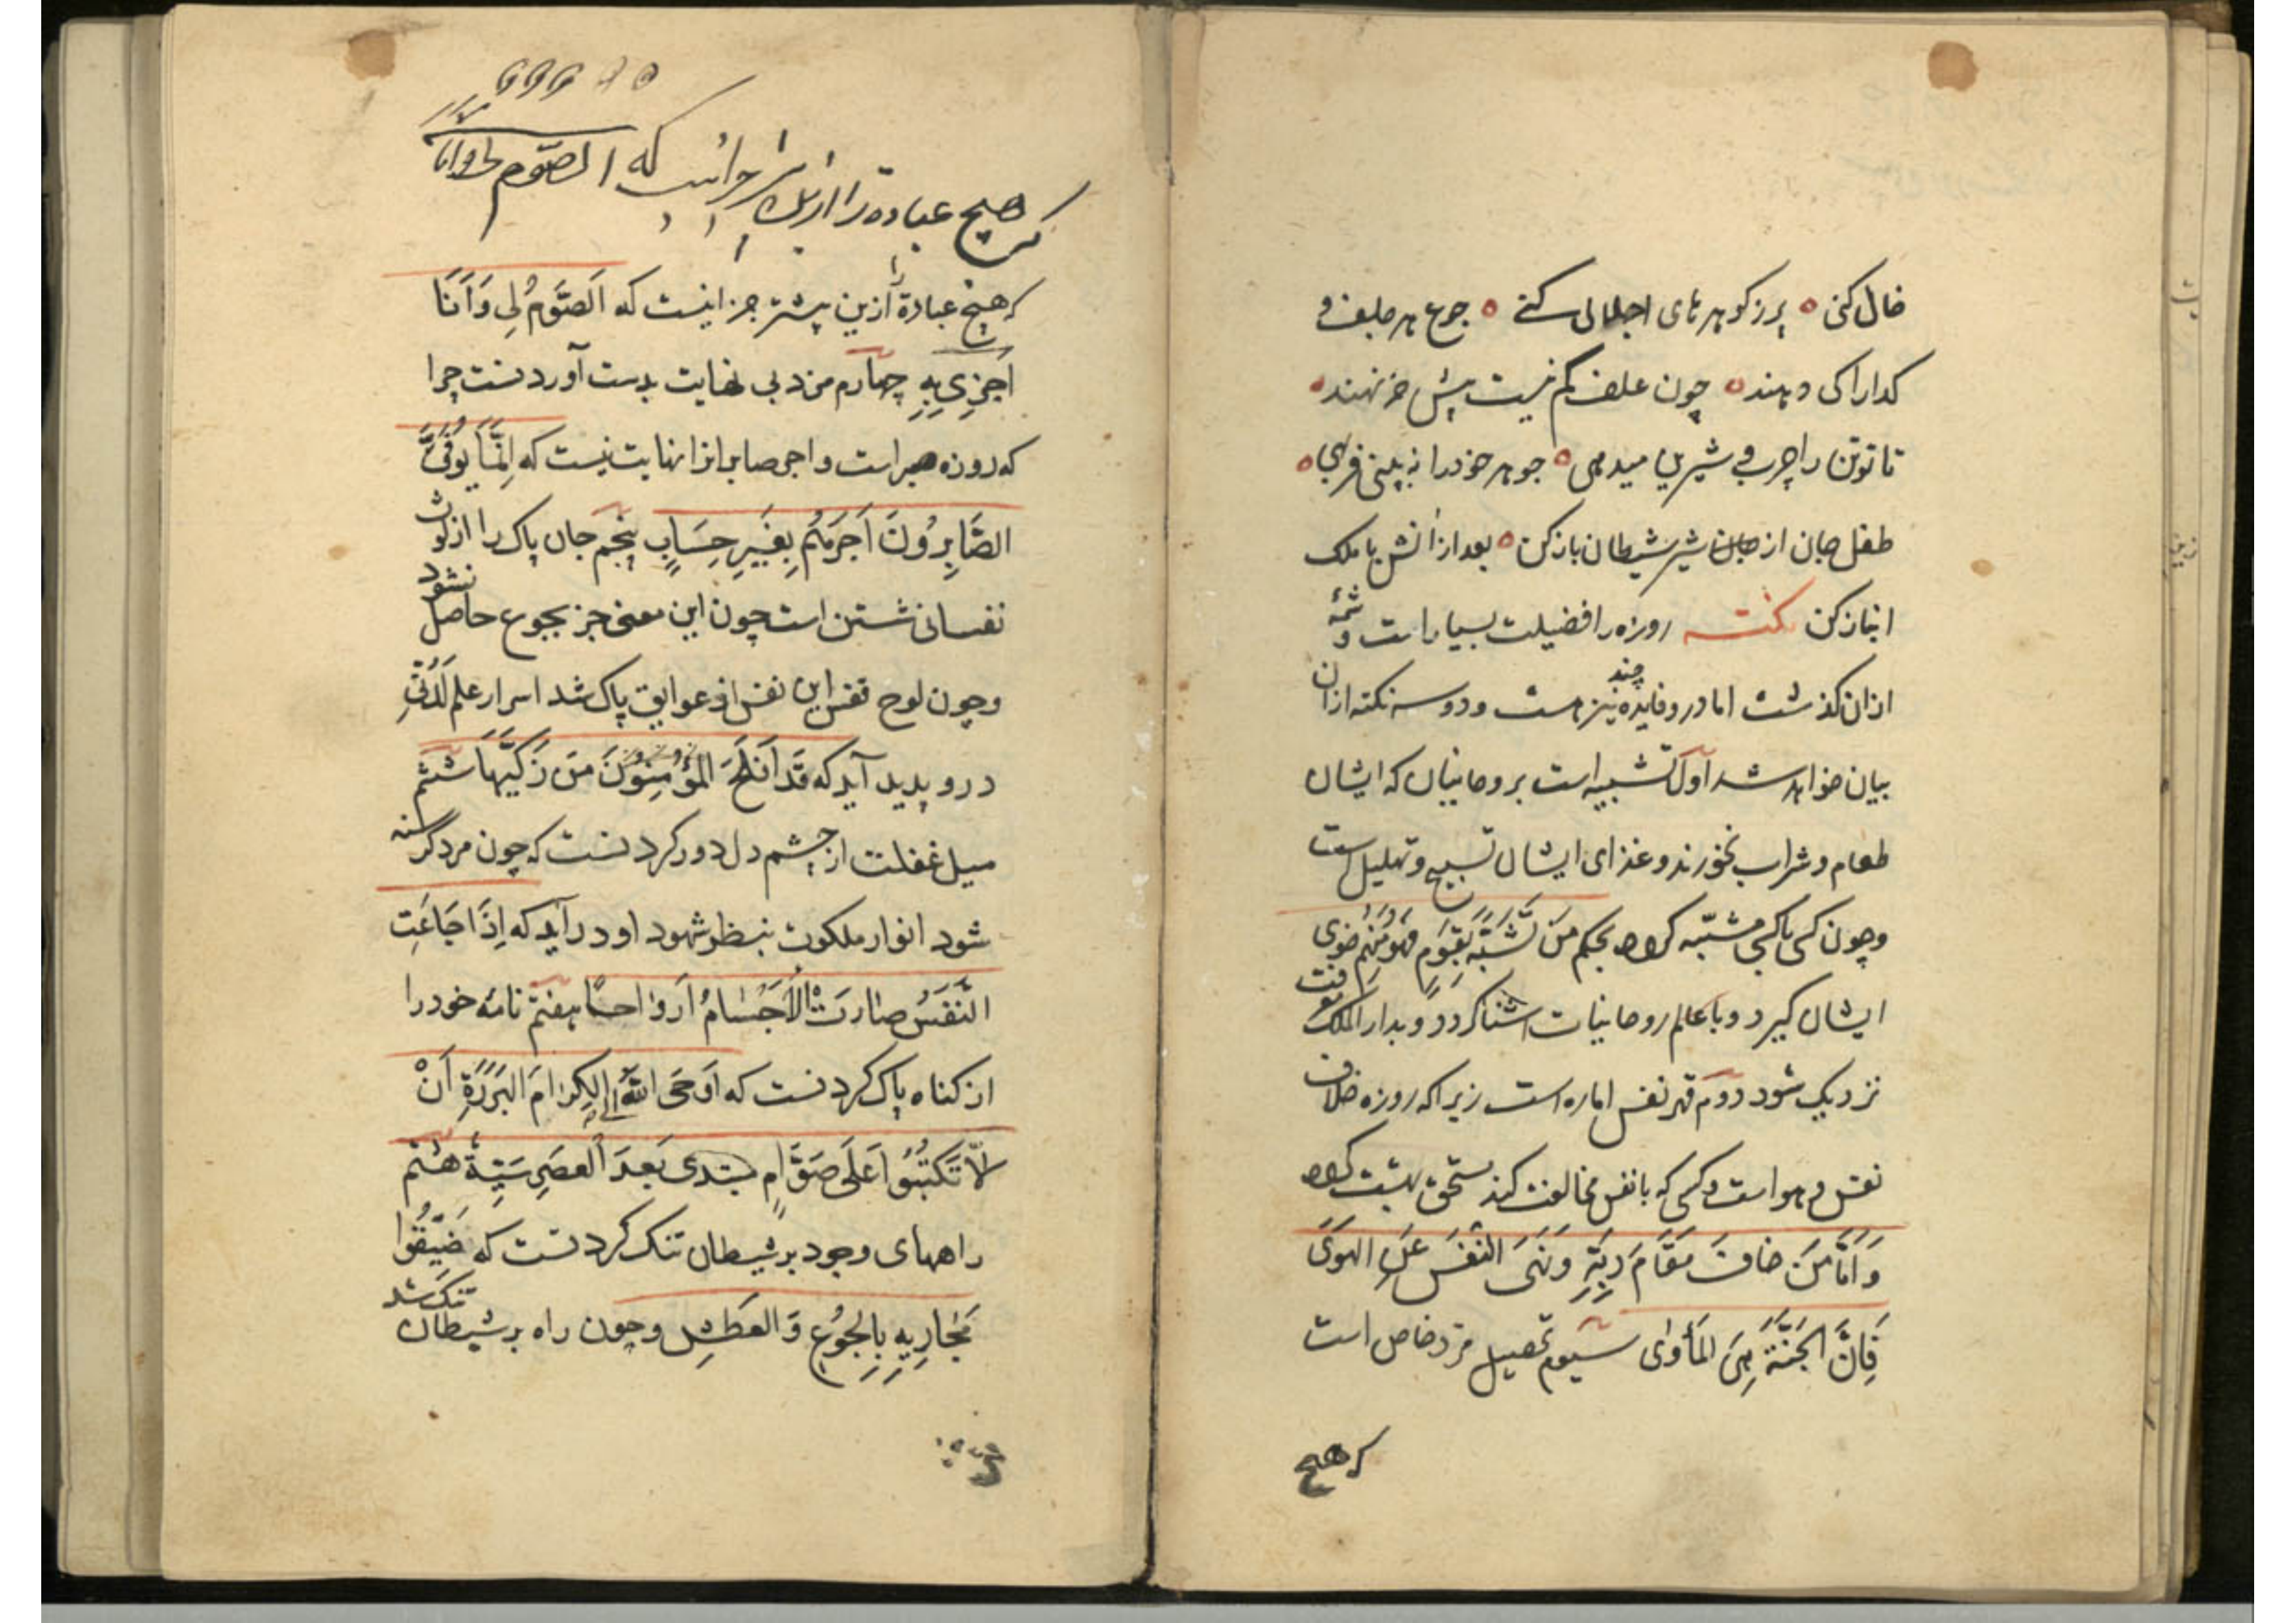 خالی کنی ه پر ز کوهرهای اجلالی کنی ه جوع هر جلف و
کدا را کی دهند ه چون علف کم نیست پیش خر نهند ه
تا تو تن را چرب و شیرین میدهی ه جوهر خود را نه بینی فربهی ه
طفل جان از شیر شیطان باز کن ه بعد از آنش با ملک
انباز کن نکته روزه را فضیلت بسیار است و شمّهٔ
ازان کذشت اما درو فایده چند نیز هست و دو سه نکته ازان
بیان خواهد شد اول تشبیه است بروحانیان که ایشان
طعام و شراب نخورند و غذای ایشان تسبیح و تهلیل است
و چون کسی با کسی مشبّه کردد بحکم مَن تَشَبَّهَ بِقَومٍ فَهُوَ مِنهُم خوی
ایشان کیرد و با عالم روحانیات آشنا کردد و بدار الملک
نزدیک شود دوم قهر نفس اماره است زیرا که روزه خلاف
نفس و هوا است و کسی که با نفس مخالفت کند مستحق بهشت کردد
وَ اَمَّا مَن خافَ مَقَامَ رَبِّهِ وَ نَهَی النَّفسَ عَنِ الهَوَی
فَاِنَّ الجَنَّةَ هِیَ المَأوٰی سیوم تحصیل مزد خاص است
که هیچ
هیچ عبادة را ازین بیشتر جزا نیست که الصّوم لی و انا
که هیچ عبادة را ازین بیشتر جزا نیست که اَلصَّومُ لِی وَ اَنَا
اَجزِی بِهِ چهارم مزد بی نهایت بدست آوردنست چرا
که روزه صبر است و اجر صابرانرا نهایت نیست که اِنَّمَا یُوَفَّی
الصَّابِرُونَ اَجرَهُم بِغَیرِ حِسَابٍ پنجم جان پاک را از لوث
نفسانی شستن است چون این معنی جز بجوع حاصل نشود
و چون لوح نفس این نفس از عوایق پاک شد اسرار علم لَدُنّی
درو پدید آید که قَد اَفلَحَ المُؤمِنُونَ مَن زَکّیٰهَا ششم
میل غفلت از چشم دل دور کردنست که چون مرد کرسنه
شود انوار ملکوت بنظر شهود او در آید که اِذَا جَاعَتِ
النَّفسُ صارَتِ الاَجسَامُ اَرواحاً هفتم نامهٔ خود را
از کناه پاک کردنست که اَوحَی اللّهُ اِلَی الکِرامَ البَرَرَةِ اَنْ
لاَّ تَکتُبُوا عَلَی صَوَّامِ عبدی بَعدَ العَصرِ سَیِّئَةً هشتم
راههای وجود بر شیطان تنک کردنست که ضَیِّقُوا
مَجَارِیهِ بِالجُوعِ وَ العَطَشِ و چون راه بر شیطان تنک شد